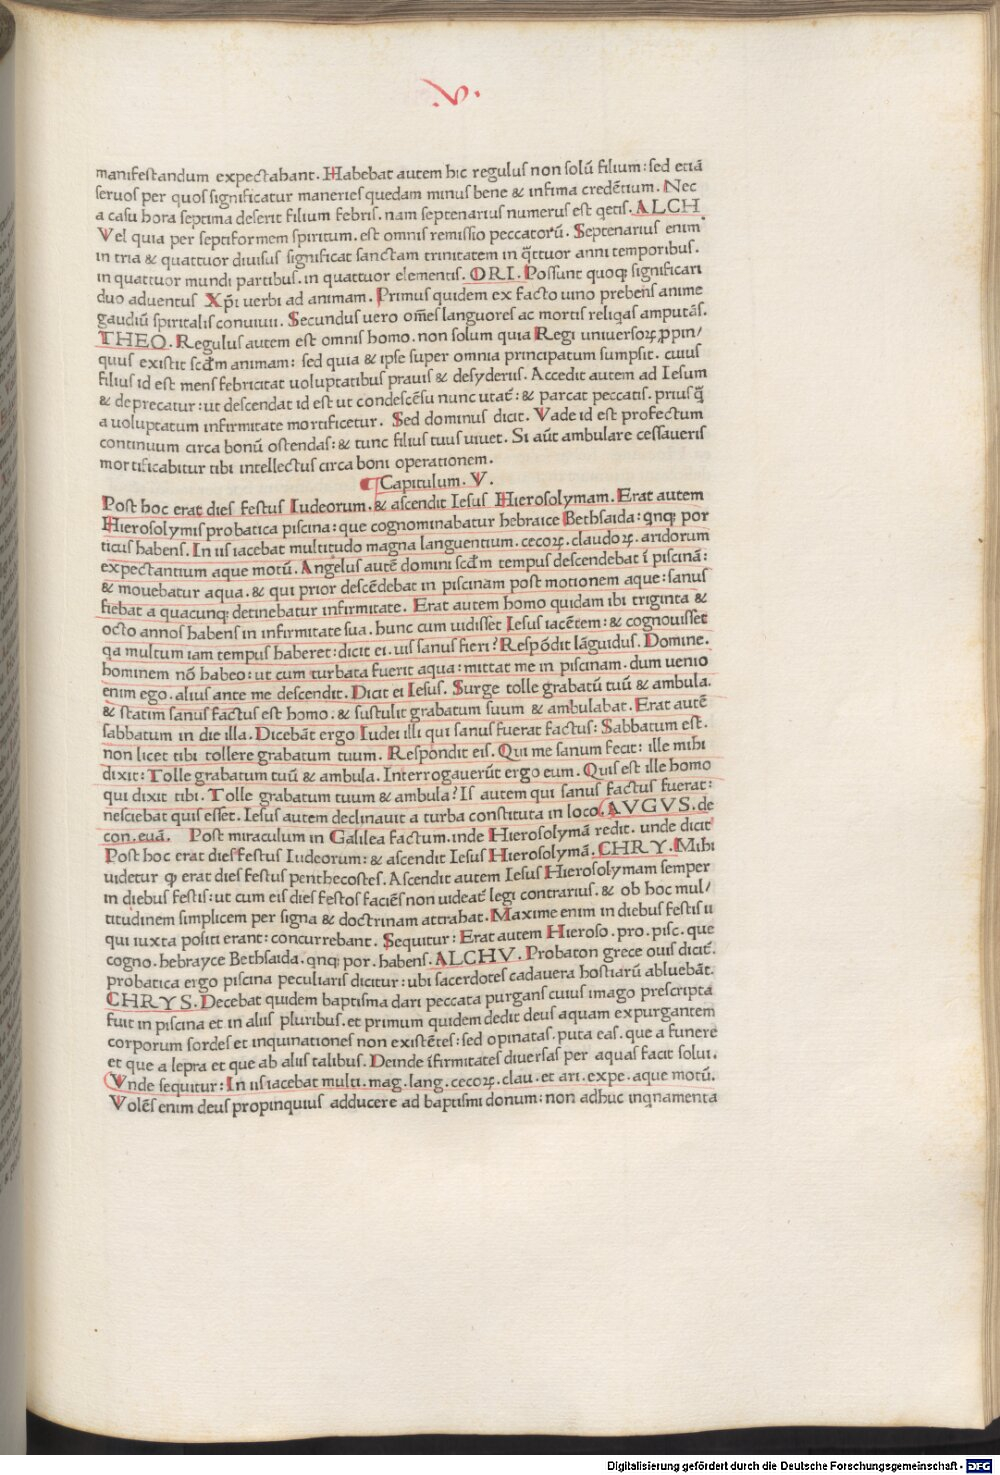 .V.
manifestandum expectabant. Habebat autem hic regulus non solū filium: sed etiā
seruos per quos significatur maneries quedam minus bene & infima credētium. Nec
a casu hora septima deserit filium febris. nam septenarius numerus est qetis. ALCH.
Vel quia per septiformem spiritum. est omnis remissio peccatorū. Septenarius enim
in tria & quattuor diuisus significat sanctam trinitatem in q̄ttuor anni temporibus.
in quattuor mundi partibus. in quattuor elementis. ORI. Possunt quoq; significari
duo aduentus Xp̄i uerbi ad animam. Primus quidem ex facto uino prebens anime
gaudiū spiritalis conuiuii. Secundus uero om̄es languores ac mortis reliqas amputās.
THEO. Regulus autem est omnis homo. non solum quia Regi uniuersoꝝ ꝓpin/
quus existit scd̄m animam: sed quia & ipse super omnia principatum sumpsit. cuius
filius id est mens febricitat uoluptatibus prauis & desyderiis. Accedit autem ad Iesum
& deprecatur: ut descendat id est ut condescēsu nunc utat̄: & parcat peccatis. prius q̄
a uoluptatum infirmitate mortificetur. Sed dominus dicit. Vade id est profectum
continuum circa bonū ostendas: & tunc filius tuus uiuet. Si aūt ambulare cessaueris
mortificabitur tibi intellectus circa boni operationem.
¶ Capitulum. V.
Post hoc erat dies festus Iudeorum. & ascendit Iesus Hierosolymam. Erat autem
Hierosolymis probatica piscina: que cognominabatur hebraice Bethsaida: qnq; por
ticus habens. In iis iacebat multitudo magna languentium. cecoꝝ. claudoꝝ. aridorum
expectantium aque motū. Angelus autē domini scd̄m tempus descendebat ī piscinā:
& mouebatur aqua. & qui prior descēdebat in piscinam post motionem aque: sanus
fiebat a quacunq; detinebatur infirmitate. Erat autem homo quidam ibi triginta &
octo annos habens in infirmitate sua. hunc cum uidisset Iesus iacētem: & cognouisset
qa multum iam tempus haberet: dicit ei. uis sanus fieri? Respōdit lāguidus. Domine.
hominem nō habeo: ut cum turbata fuerit aqua: mittat me in piscinam. dum uenio
enim ego. alius ante me descendit. Dicit ei Iesus. Surge tolle grabatū tuū & ambula.
& statim sanus factus est homo. & sustulit grabatum suum & ambulabat. Erat autē
sabbatum in die illa. Dicebāt ergo Iudei illi qui sanus fuerat factus: Sabbatum est.
non licet tibi tollere grabatum tuum. Respondit eis. Qui me sanum fecit: ille mihi
dixit: Tolle grabatum tuū & ambula. Interrogauerūt ergo eum. Quis est ille homo
qui dixit tibi. Tolle grabatum tuum & ambula? Is autem qui sanus factus fuerat:
nesciebat quis esset. Iesus autem declinauit a turba constituta in loco. AVGVS. de
con. euā. Post miraculum in Galilea factum. inde Hierosolymā redit. unde dicit̄
Post hoc erat dies festus Iudeorum: & ascendit Iesus Hierosolymā. CHRY. Mihi
uidetur ꝙ erat dies festus penthecostes. Ascendit autem Iesus Hierosolymam semper
in diebus festis: ut cum eis dies festos faciēs non uideat̄ legi contrarius. & ob hoc mul/
titudinem simplicem per signa & doctrinam attrahat. Maxime enim in diebus festis ii
qui iuxta positi erant: concurrebant. Sequitur: Erat autem Hieroso. pro. pisc. que
cogno. hebrayce Bethsaida. qnq; por. habens. ALCHV. Probaton grece ouis dicit̄.
probatica ergo piscina peculiaris dicitur: ubi sacerdotes cadauera hostiarū abluebāt.
CHRYS. Decebat quidem baptisma dari peccata purgans cuius imago prescripta
fuit in piscina et in aliis pluribus. et primum quidem dedit deus aquam expurgantem
corporum sordes et inquinationes non existētes: sed opinatas. puta eas. que a funere
et que a lepra et que ab aliis talibus. Deinde īfirmitates diuersas per aquas facit solui.
Vnde sequitur: In iis iacebat multi. mag. lang. cecoꝝ. clau. et ari. expe. aque motū.
Volēs enim deus propinquius adducere ad baptismi donum: non adhuc inqnamenta
Digitalisierung gefördert durch die Deutsche Forschungsgemeinschaft - DFG